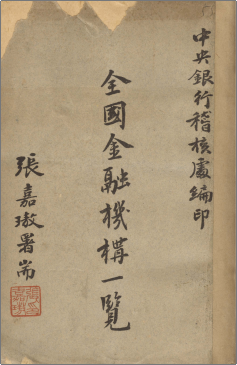 中央銀行稽核處編印
全國金融機構一覽
張嘉璈署耑